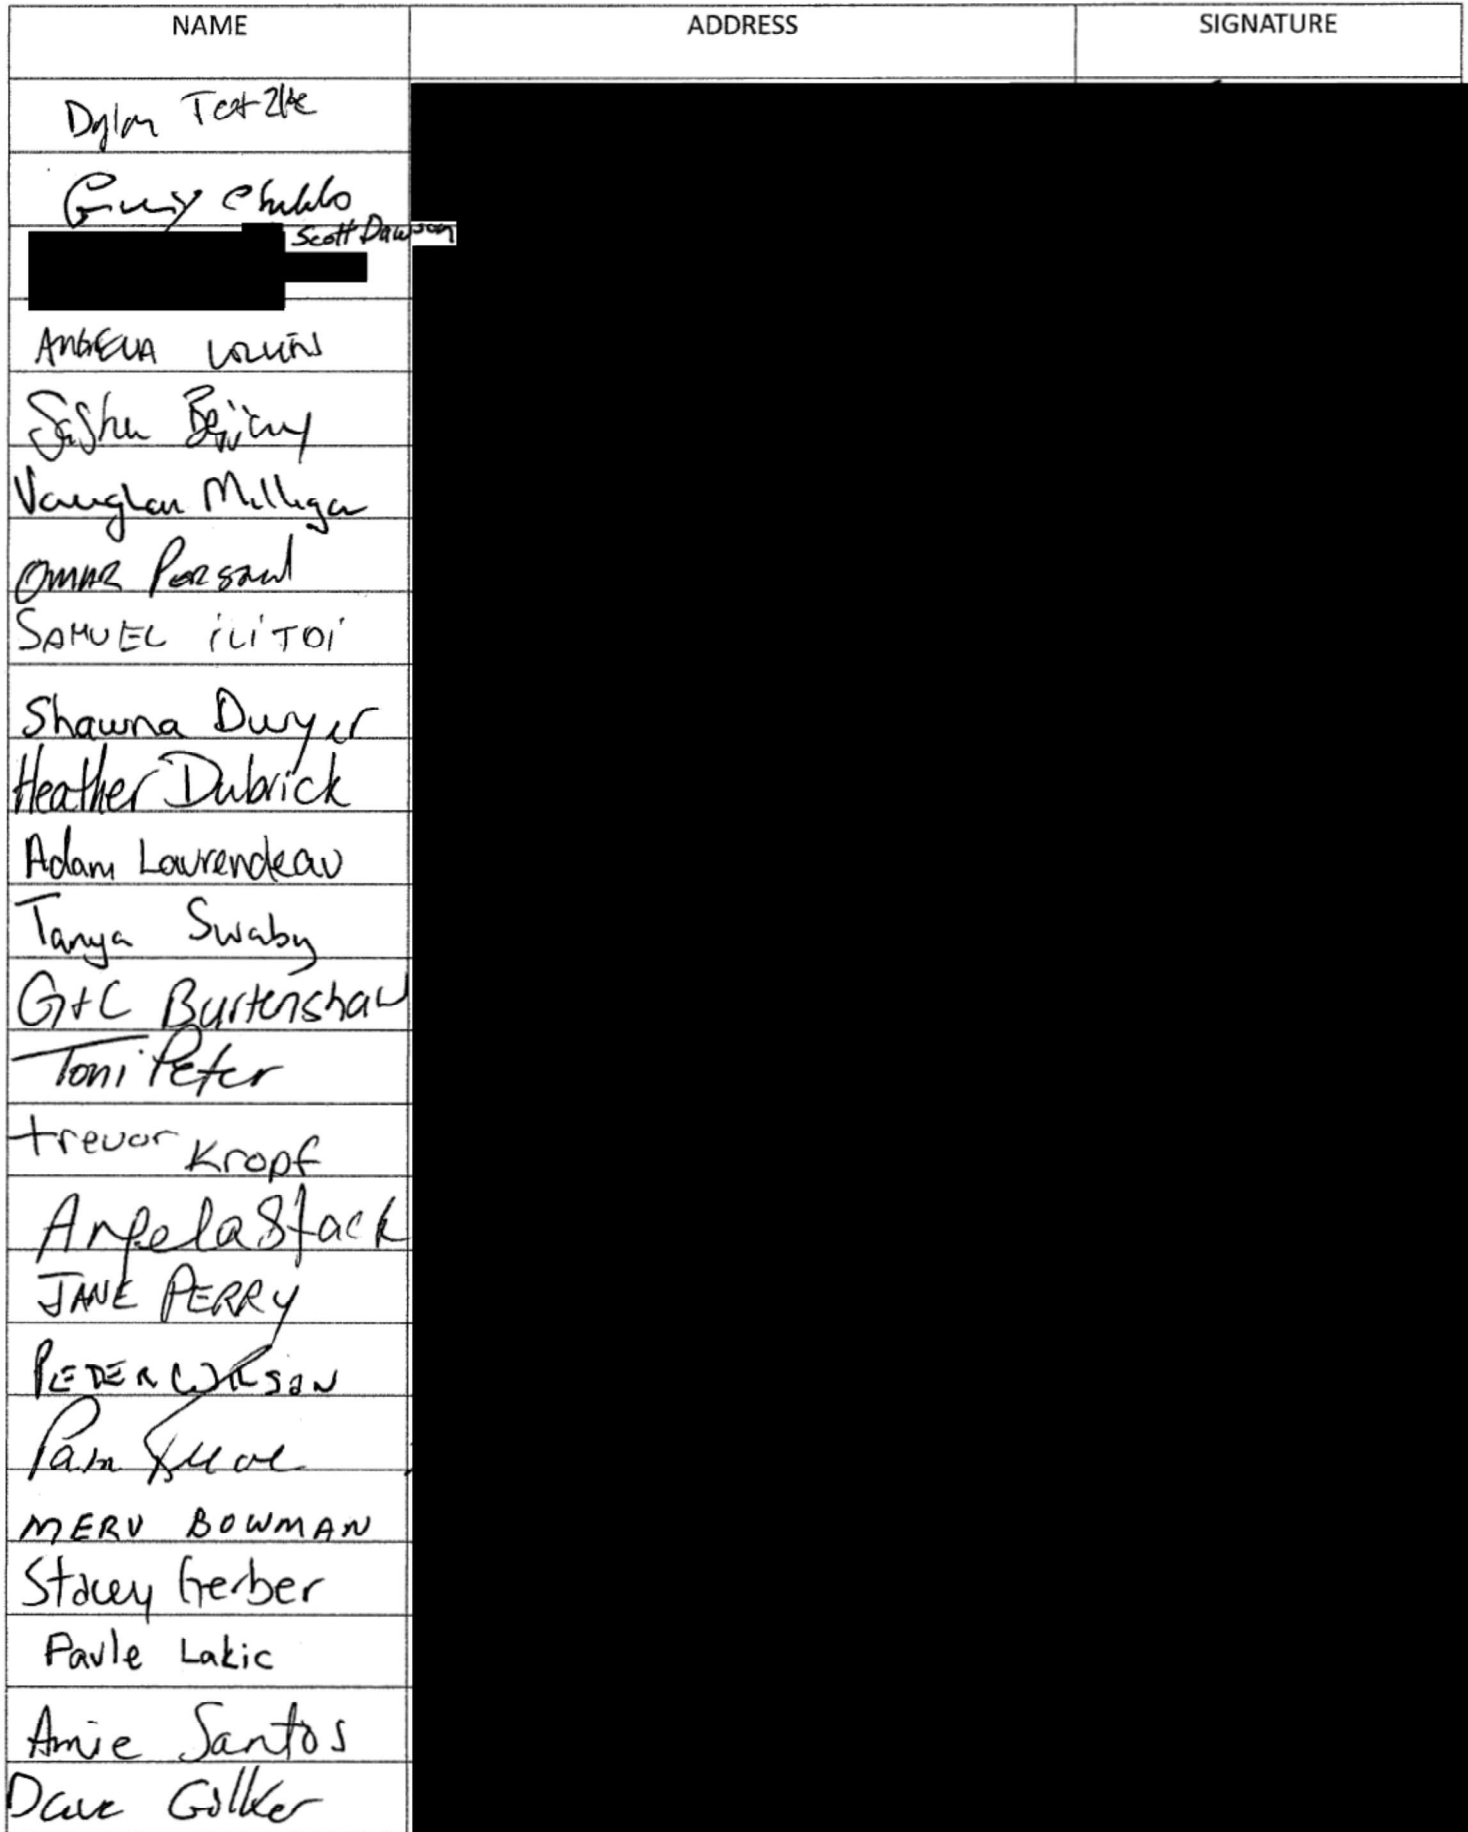 NAME ADDRESS SIGNATURE
Dylan
Scott Dawson
ANGELA
Sasha
Vaughan Milligan
OMAR Persaud
SAMUEL iLiTOi
Shawna Dwyer
Heather Dubrick
Adam Laurendeau
Tanya Swaby
G+C Burtenshaw
Toni Peter
trevor Kropf
Angela Stack
JANE PERRY
PEDER WILSON
Pam
MERV BOWMAN
Stacey Gerber
Pavle Lakic
Amie Santos
Dave Gillker